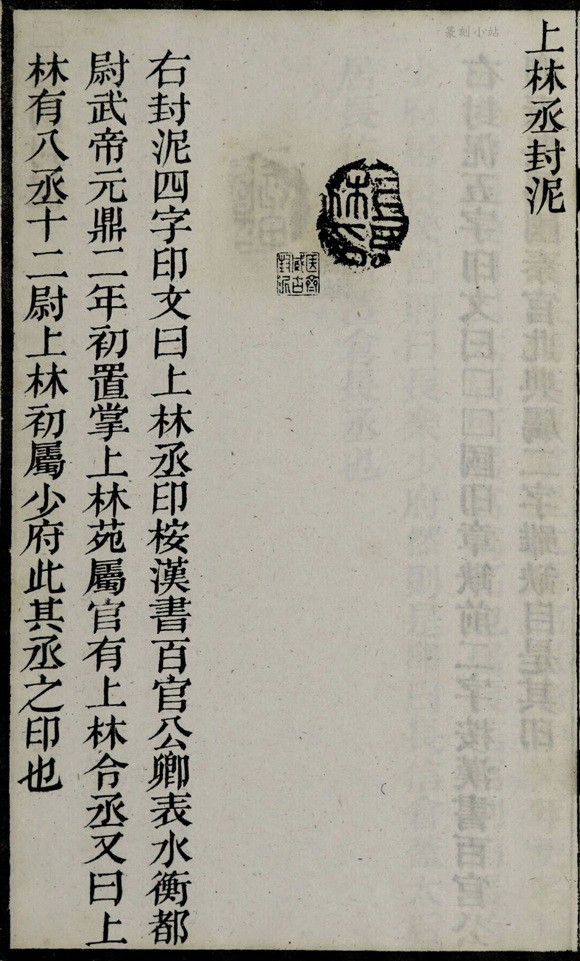 上林丞封泥
右封泥四字印文曰上林丞印桉漢書百官公卿表水衡都
尉武帝元鼎二年初置掌上林苑屬官有上林令丞又曰上
林有八丞十二尉上林初屬少府此其丞之印也
篆刻小站